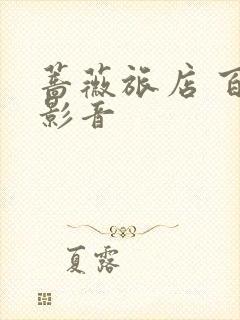 蔷薇旅店 百
影音
夏露